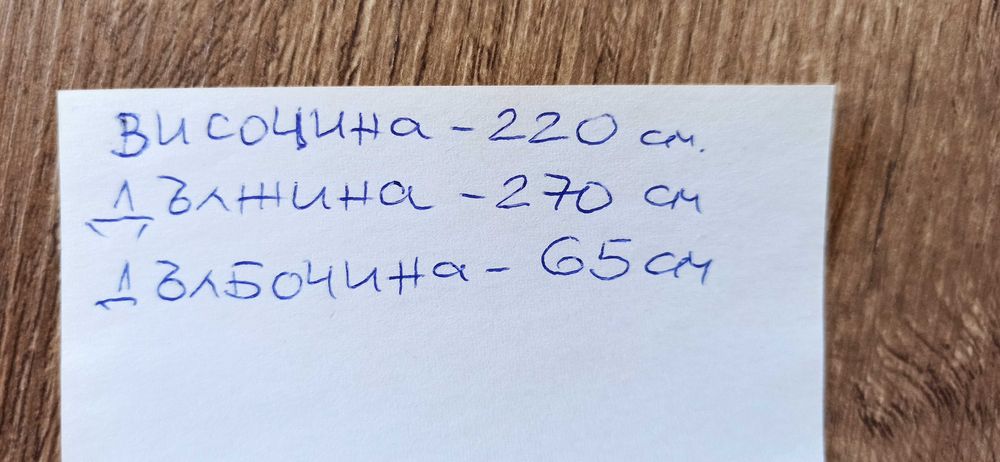 Височина - 220 см.
Дължина - 270 см
Дълбочина - 65 см